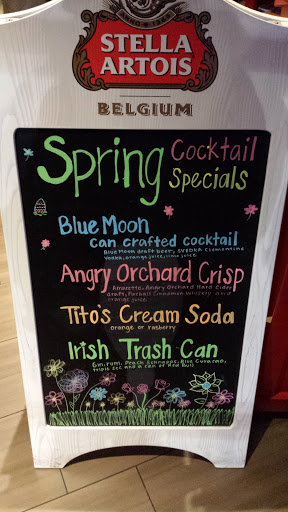 STELLA
ARTOIS
BELGIUM
Spring Cocktail
Specials
Blue Moon
can crafted cocktail
Blue Moon draft beer, SVEDKA Clementine
Vodka, orange juice, lime juice
Angry Orchard Crisp
Amaretto, Angry Orchard Hard Cider
draft, Fireball Cinnamon Whiskey and
orange juice
Tito's Cream Soda
orange or rasberry
Irish Trash Can
Gin, rum, Peach Schnapps, Blue Curacao,
triple sec and a can of Red Bull